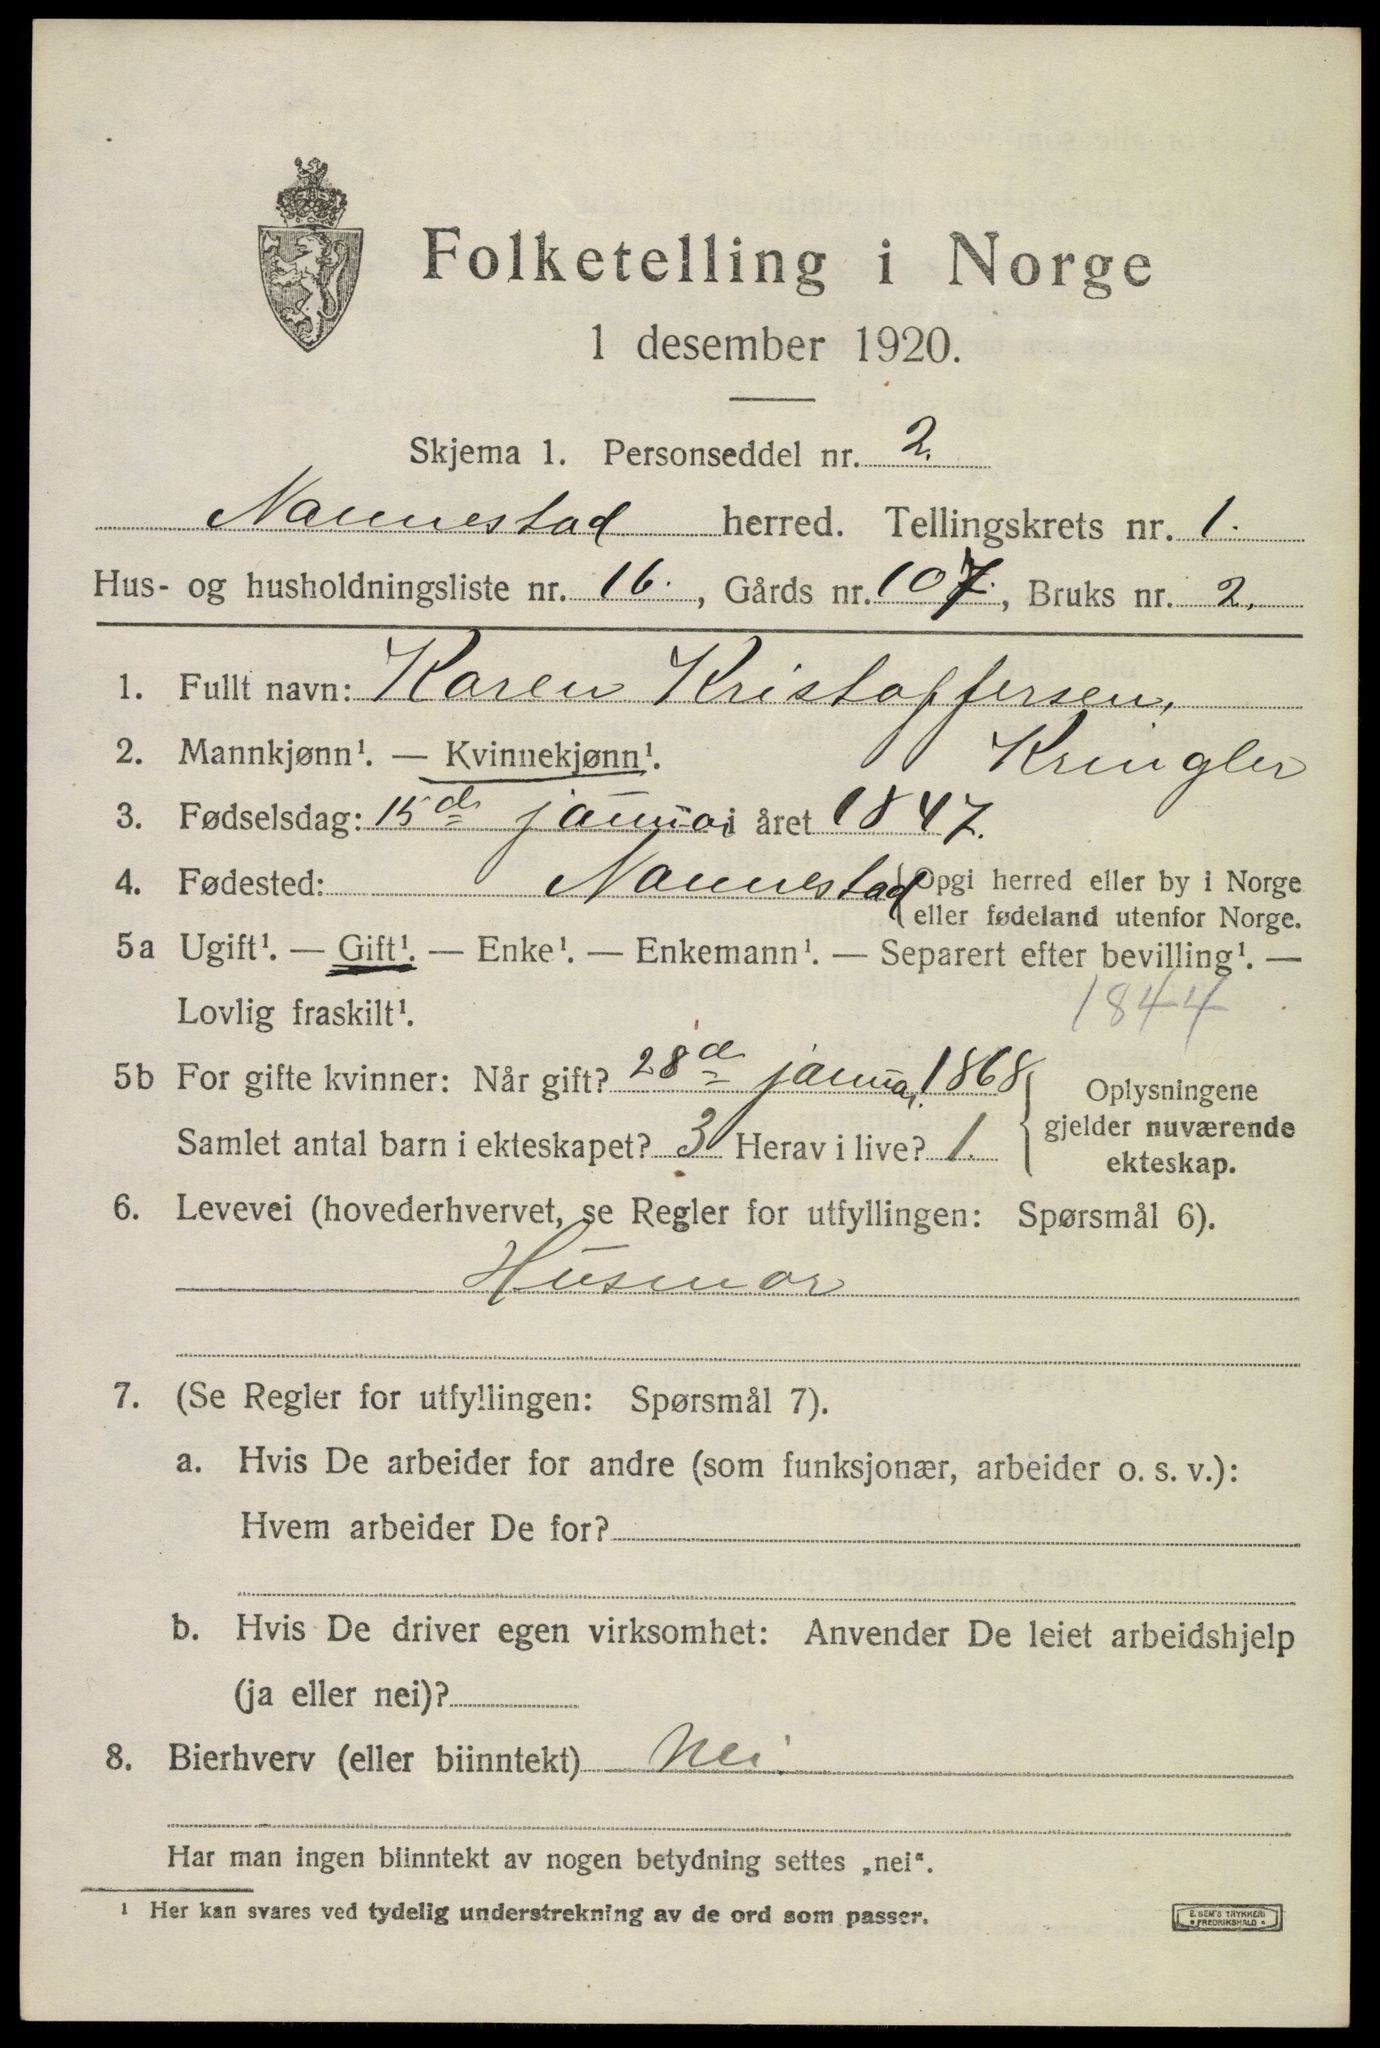 Folketelling i Norge
1 desember 1920.
Skjema 1. Personseddel nr. 2.
Nannestad herred. Tellingskrets nr. 1.
Hus- og husholdningsliste nr. 16., Gårds nr. 107., Bruks nr. 2.
1. Fullt navn: Karen Kristoffersen,
Kringler
2. Mannkjønn¹. — Kvinnekjønn¹.
3. Fødselsdag: 15de januar i året 1847.
4. Fødested: Nannestad (Opgi herred eller by i Norge
eller fødeland utenfor Norge.
5a Ugift¹. — Gift¹. — Enke¹. — Enkemann¹. — Separert efter bevilling¹. —
Lovlig fraskilt¹.
1844
5b For gifte kvinner: Når gift? 28de januar 1868
Samlet antal barn i ekteskapet? 3 Herav i live? 1.
Oplysningene
gjelder nuværende
ekteskap.
6. Levevei (hovederhvervet, se Regler for utfyllingen: Spørsmål 6).
Husmor
7. (Se Regler for utfyllingen: Spørsmål 7).
a. Hvis De arbeider for andre (som funksjonær, arbeider o. s. v.):
Hvem arbeider De for?
b. Hvis De driver egen virksomhet: Anvender De leiet arbeidshjelp
(ja eller nei)?
8. Bierhverv (eller biinntekt) Nei.
Har man ingen biinntekt av nogen betydning settes „nei“.
¹ Her kan svares ved tydelig understrekning av de ord som passer.
E. SEM'S TRYKKERI
• FREDRIKSHALD •